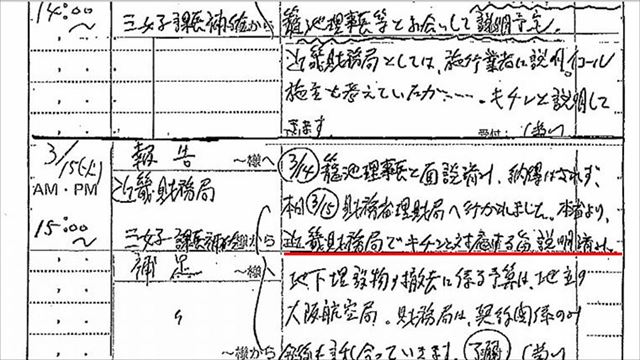 14:00
～
三好 課長補佐から
籠池理事長等とお会いして説明予定。
近畿財務局としては、施行業者に説明。イコール
施主も考えていたが……。キチンと説明して
きます
受付:
3/15(火)
報告
～様へ
3/14 籠池理事長と面談済み、納得はされず、
AM・PM
近畿財務局
本日 3/15 財務省理財局へ行かれました。本省より、
15:00
～
課長補佐から
近畿財務局でキチンと対応する旨、説明済み。
補足
～様へ
地下埋設物撤去に係る予算は、
大阪航空局。財務局は、契約関係のみ
～様から